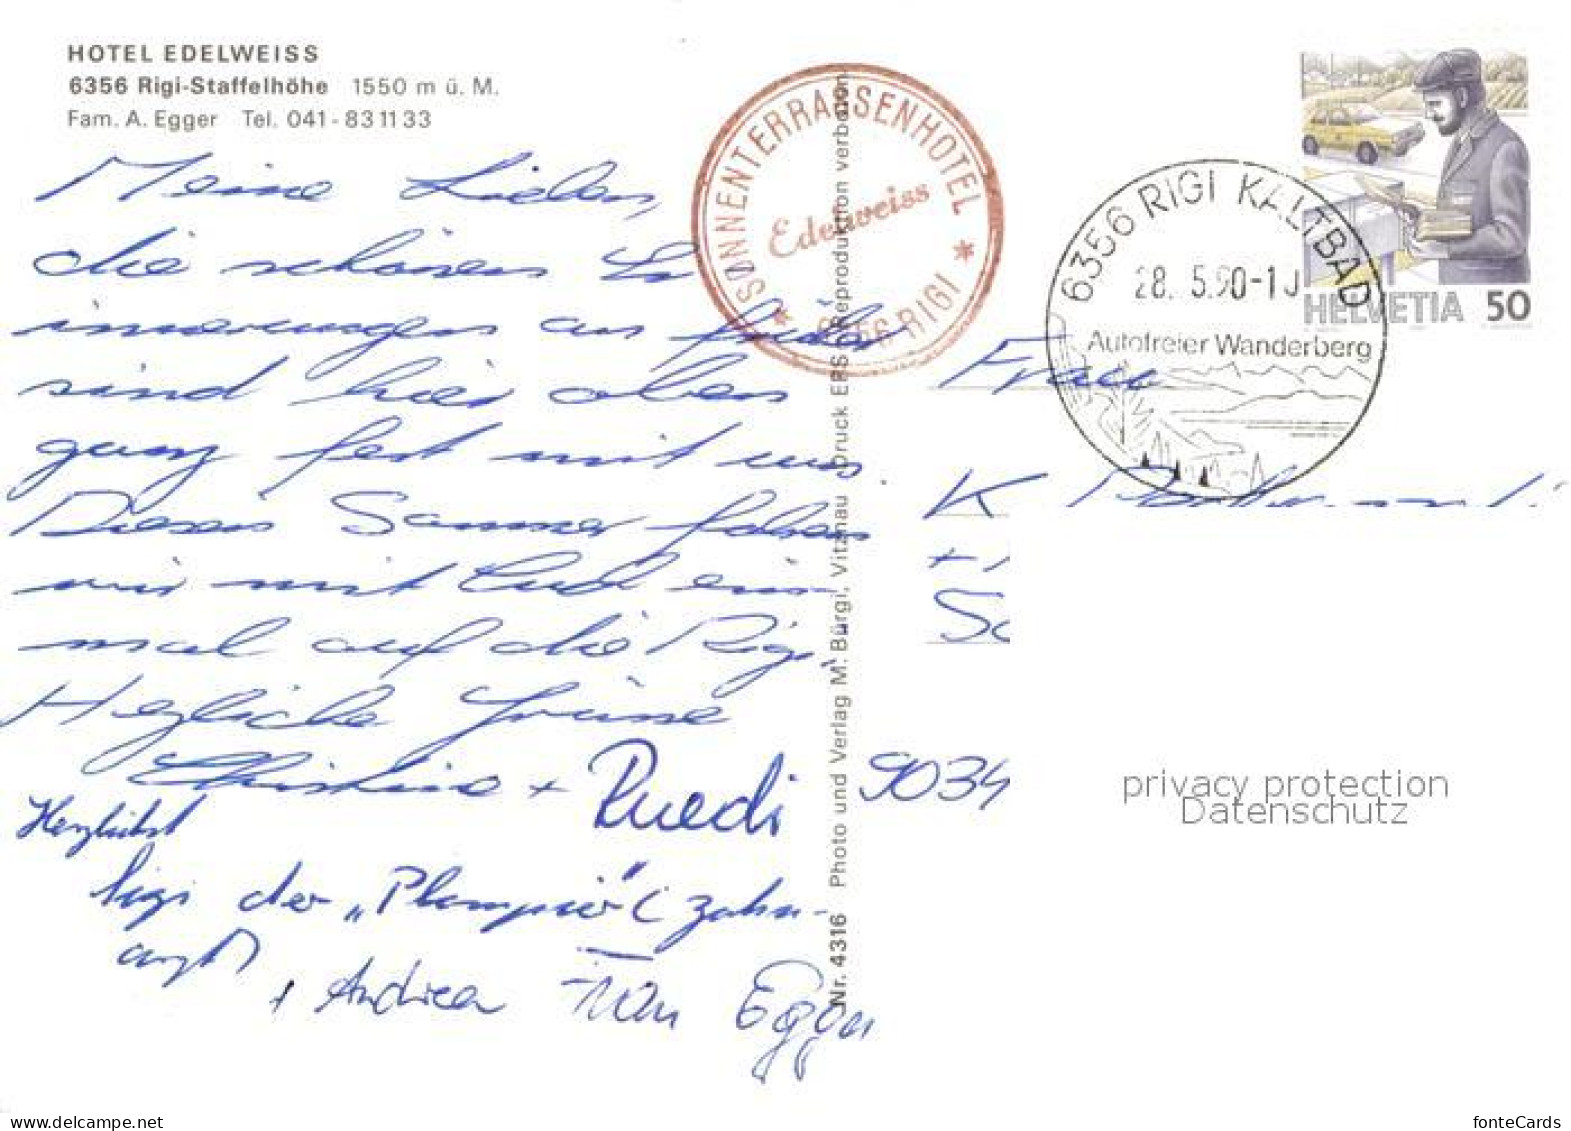 HOTEL EDELWEISS
6356 Rigi-Staffelhöhe 1550 m ü. M.
Fam. A. Egger Tel. 041-83 11 33
Meine Lieben,
die schönen Er
innerungen an früher
sind hier oben
ganz fest mit uns
Diesen Sommer fahren
wir mit Euch ein-
mal auf die Rigi.
Herzliche Grüsse
Christine + Ruedi
Herzlichst
der „Plompier" (Zahn-
arzt)
+ Andrea Egger
SONNENTERRASSENHOTEL
Edelweiss
* 6356 RIGI *
Nr. 4316 Photo und Verlag M. Bürgi, Vitznau Druck ERS Reproduktion verboten
6356 RIGI KALTBAD
28. 5.90-1
Autofreier Wanderberg
HELVETIA 50
Frau
K
9034
privacy protection
Datenschutz
fonteCards